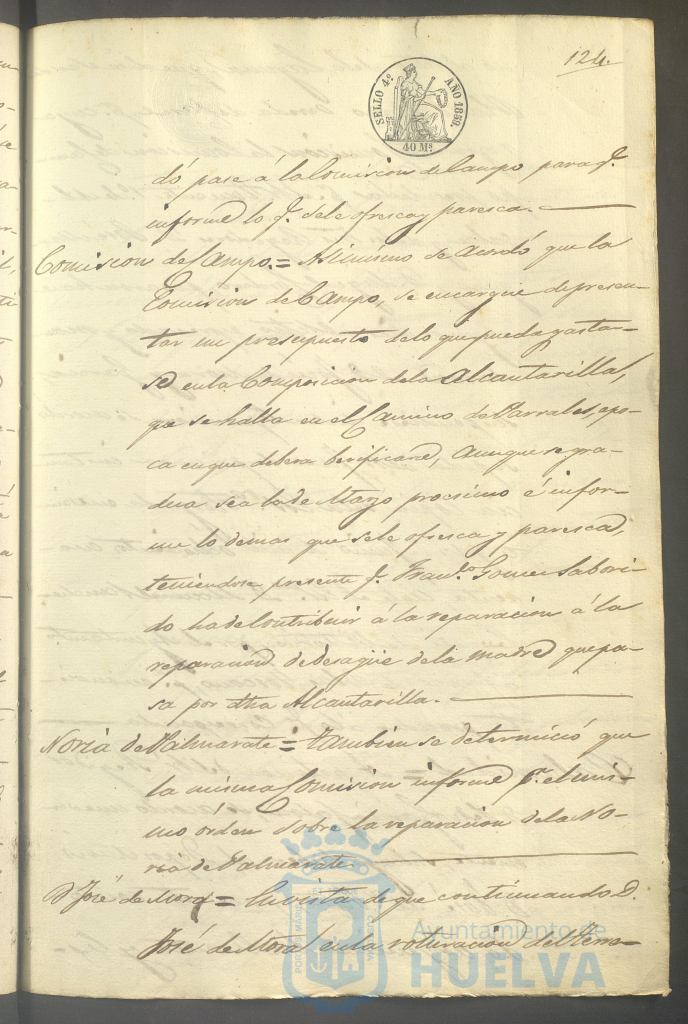 124.
SELLO 4º AÑO 1859.
40 Ms
dó pase á la Comision de Campo para q.e
informe lo q.e se le ofresca y paresca.
Comision de Campo.= Asimismo se acordó que la
Comision de Campo, se encargue de presen-
tar un presupuesto de lo que pueda gastar-
se en la Composicion de la Alcantarilla,
que se halla en el Camino de Parrales, epo-
ca en que debera berificarse, aunque se gra-
dua sea la de Marzo procsimo é infor-
me lo demas que se le ofresca y paresca,
teniendose presente q.e Gomez Sabori-
do ha de Contribuir á la reparacion á la
reparacion de desagüe de la madre que pa-
sa por dha Alcantarilla.
Noria de Valmarate = tambien se determinó que
la misma Comision informe p.r el mis-
mo órden sobre la reparacion de la No-
ria de Valmarate.
D José de Mora = En vista de que continuando D.
José de Mora en la roturacion de terre-
Ayuntamiento de
HUELVA